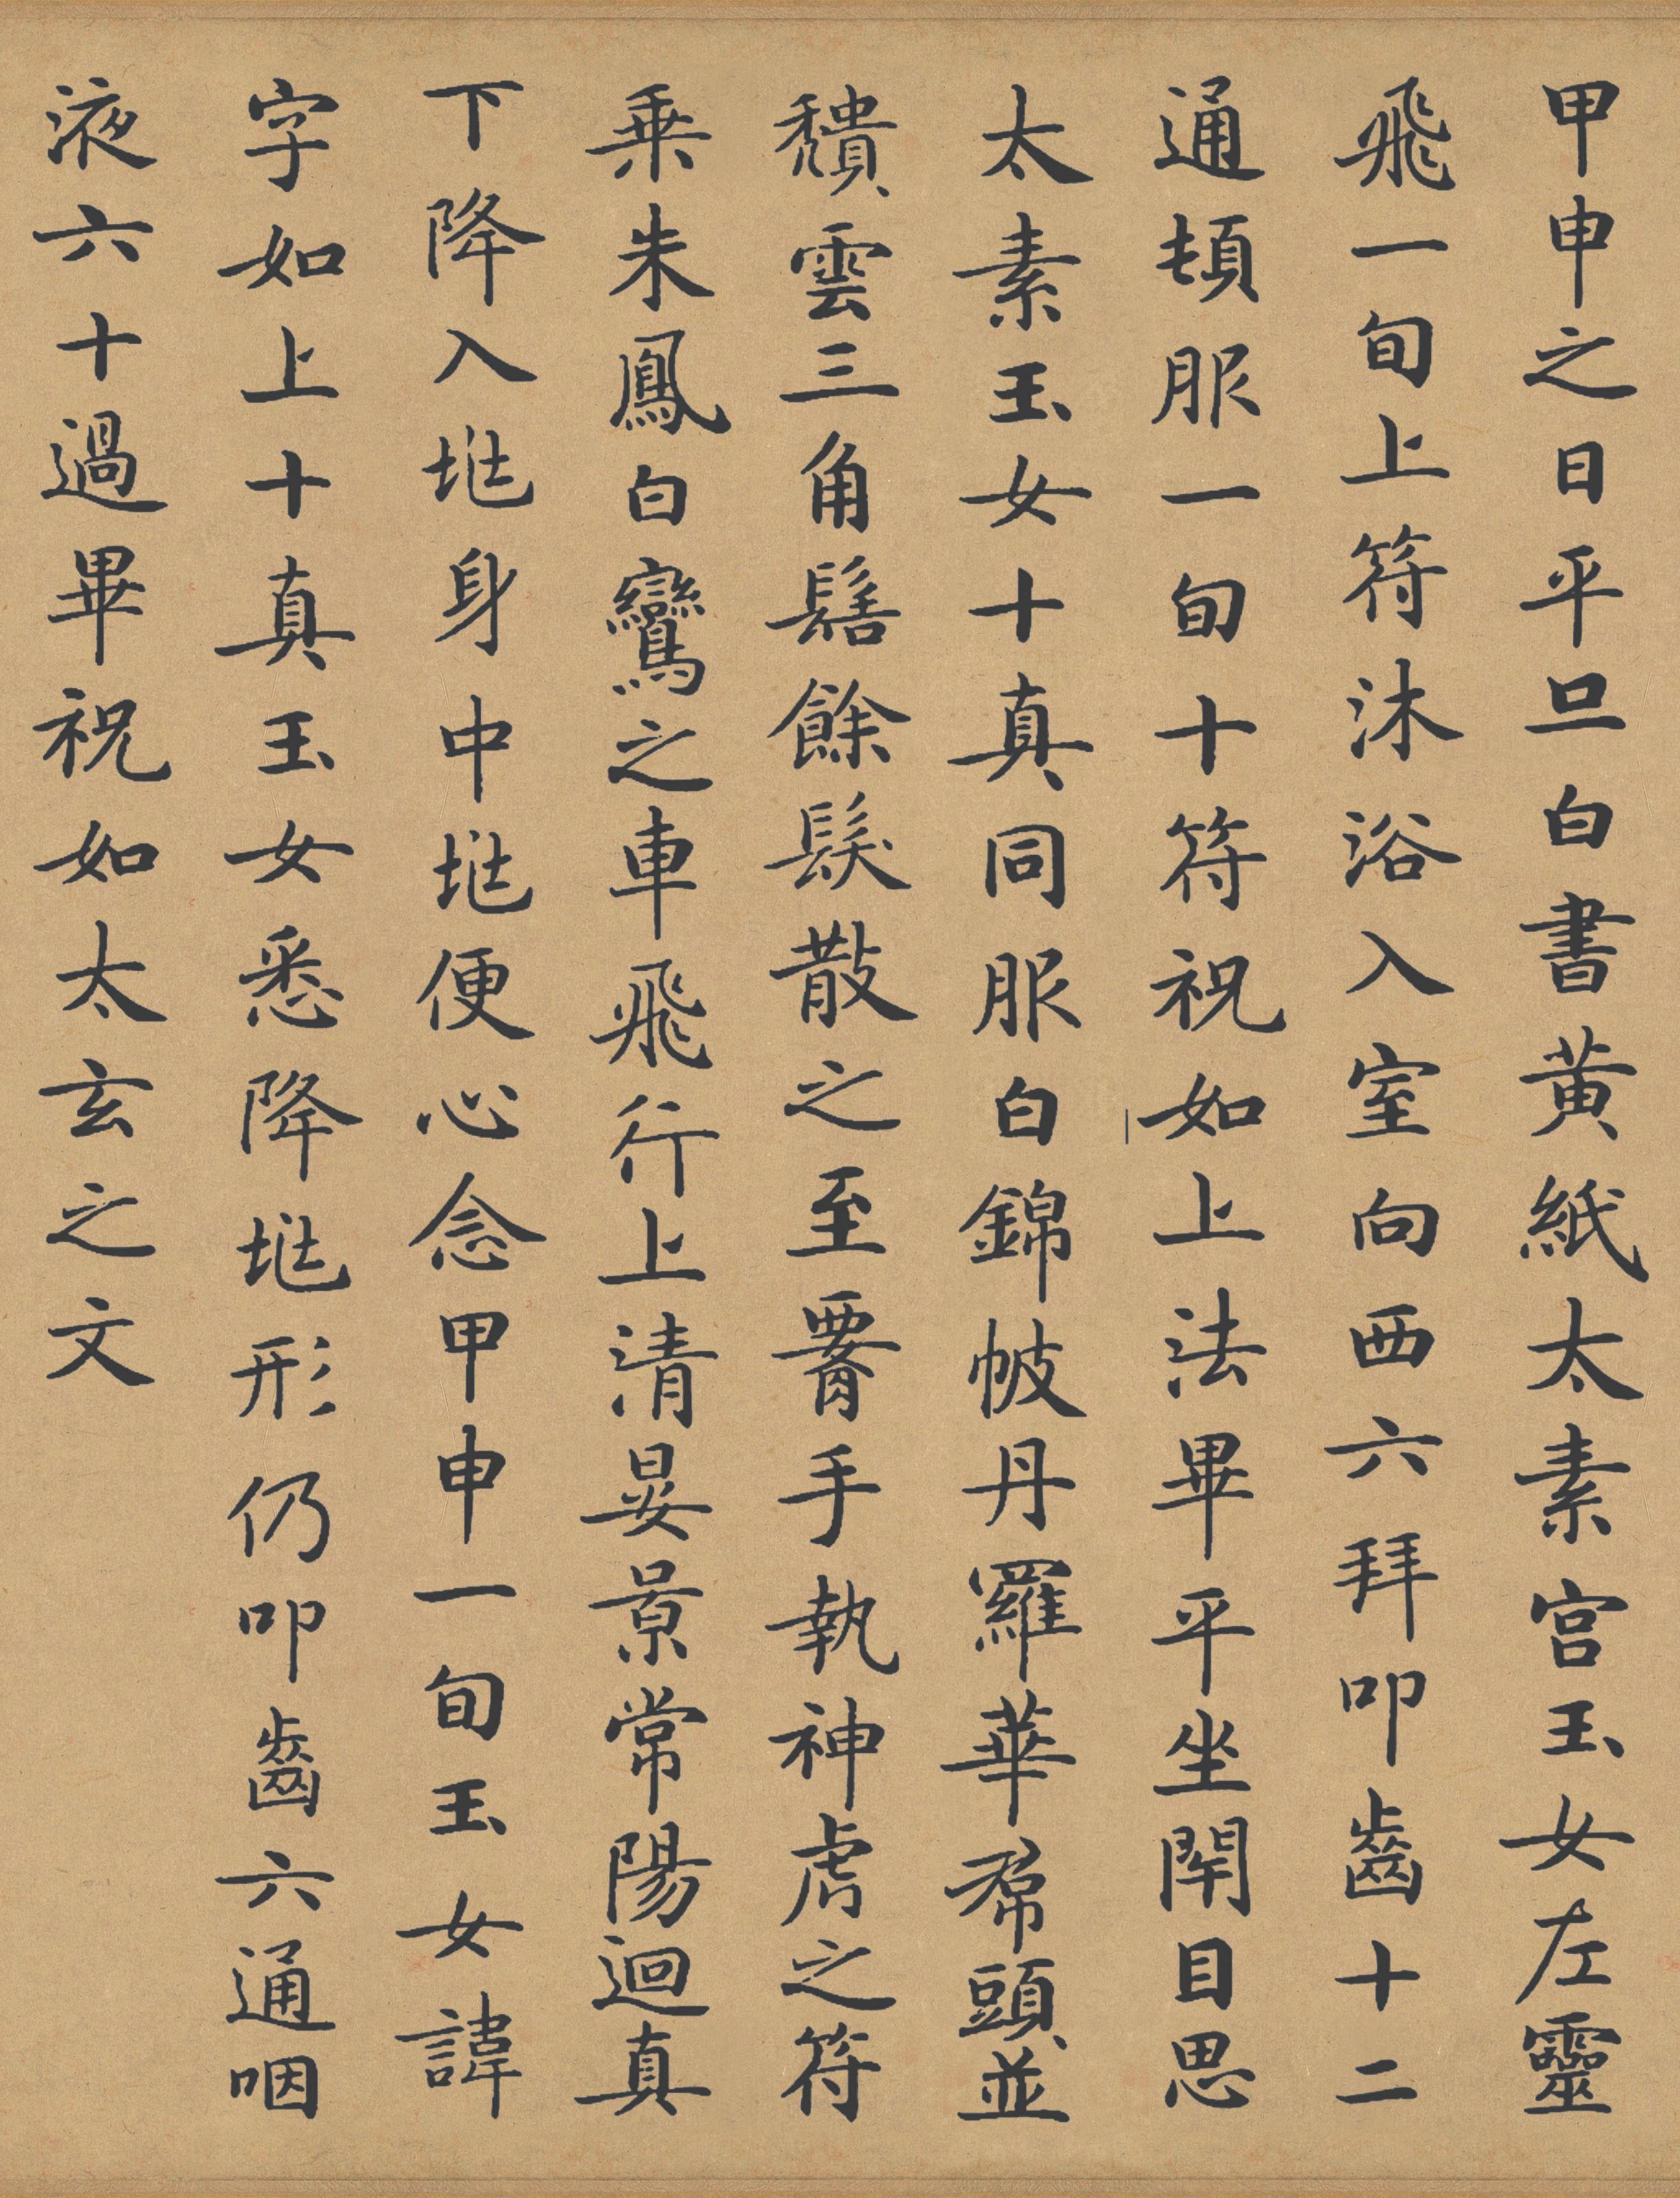 甲申之日平旦白書黄紙太素宫玉女左靈
飛一旬上符沐浴入室向西六拜叩齒十二
通頓服一旬十符祝如上法畢平坐閇目思
太素玉女十真同服白錦帔丹羅華帬頭並
穨雲三角髻餘髮散之至署手執神虎之符
乗朱鳳白鸞之車飛行上清晏景常陽迴真
下降入埊身中埊便心念甲申一旬玉女諱
字如上十真玉女悉降埊形仍叩齒六通咽
液六十過畢祝如太玄之文